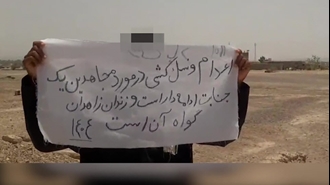 اعدام و نسل کشی در مورد مجاهدین یک
جنایت ادامه دار است و زندان زاهدان
گواه آن است ۱۴۰۴